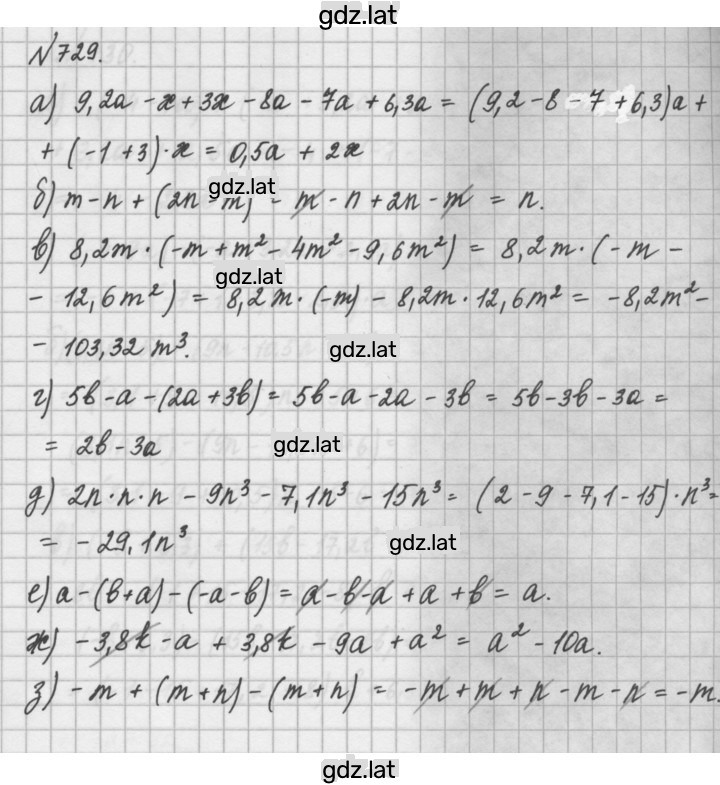 gdz.lat
№729.
а) 9,2a - x + 3x - 8a - 7a + 6,3a = (9,2 - 8 - 7 + 6,3)a +
+ (-1 + 3) · x = 0,5a + 2x
gdz.lat
б) m - n + (2n - m) - m - n + 2n - m = n.
в) 8,2m · (-m + m² - 4m² - 9,6m²) = 8,2m · (-m -
gdz.lat
- 12,6m²) = 8,2m · (-m) - 8,2m · 12,6m² = -8,2m² -
- 103,32m³.
gdz.lat
г) 5b - a - (2a + 3b) = 5b - a - 2a - 3b = 5b - 3b - 3a =
= 2b - 3a
gdz.lat
д) 2n · n · n - 9n³ - 7,1n³ - 15n³ = (2 - 9 - 7,1 - 15) · n³ =
= - 29,1n³
gdz.lat
е) a - (b + a) - (-a - b) = a - b - a + a + b = a.
ж) -3,8k - a + 3,8k - 9a + a² = a² - 10a.
з) -m + (m + n) - (m + n) = -m + m + n - m - n = -m.
gdz.lat